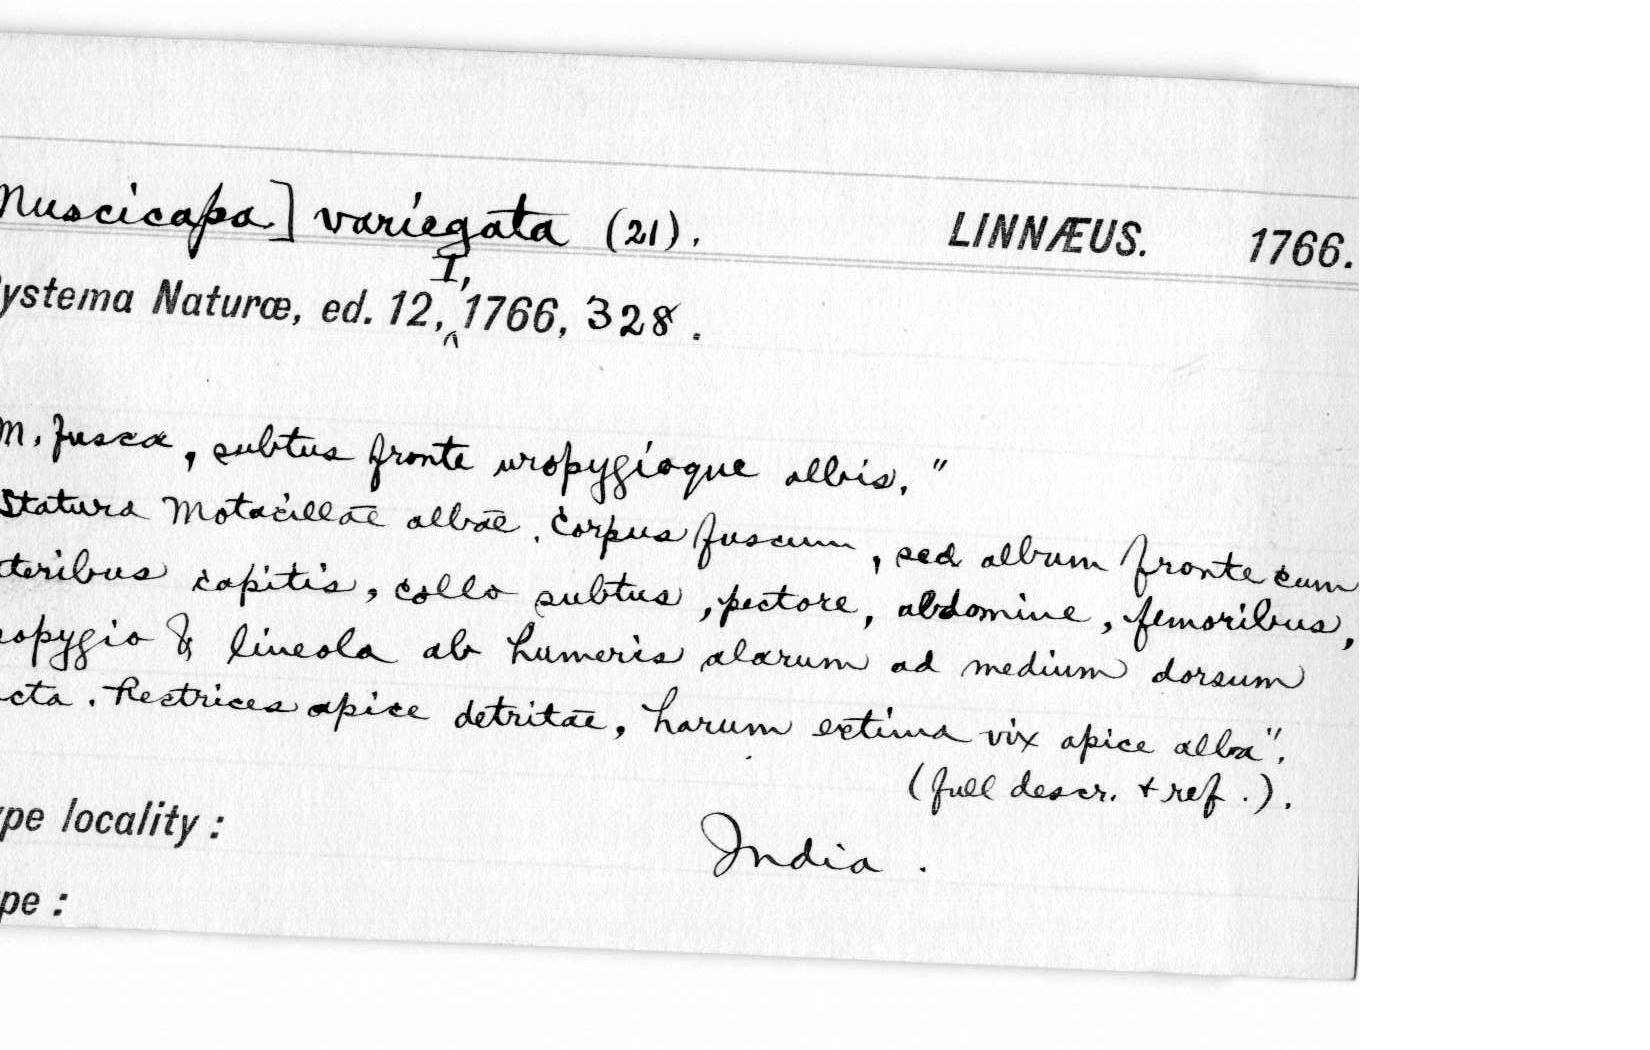 Muscicapa] variegata (21). LINNÆUS. 1766.
ystema Naturæ, ed. 12, I, 1766, 328.
M. fusca, subtus fronte uropygioque albis."
Statura Motacillae albae. Corpus fuscum, sed album fronte cum
teribus capitis, collo subtus, pectore, abdomine, femoribus,
opygio & lineola ab humeris alarum ad medium dorsum
cta. Rectrices apice detritae, harum extima vix apice alba".
(full descr. + ref.).
ype locality: India.
pe: